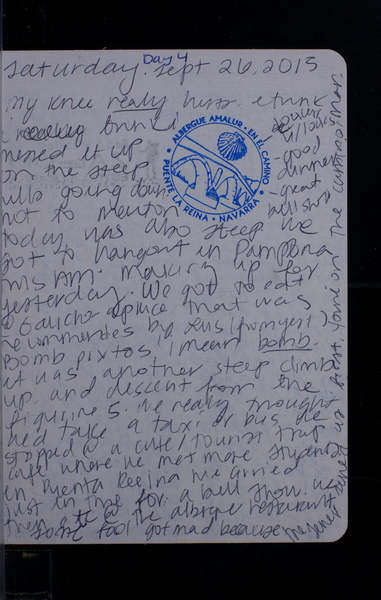 Day 4
Saturday. Sept 26, 2015
my knee really hurts. I think
I really
messed it up
on the steep
hills going down
not to mention
today was also steep. We
got to hangout in Pamplona
this AM. making up for
yesterday. We got to eat
@ Gaucho a place that was
recommended by
Bomb pixtos, I mean bomb.
it was another steep climb
up and descent from the
figurines. We really thought
we'd take a taxi or bus. We
stopped @ a cute/tourist trap
cafe where we met more students
in Puenta Reina we arrived
just in time for a bull show. We
then @ the albergue restaurant
fool got mad because
ALBERGUE AMALUR • EN EL CAMINO
PUENTE LA REINA • NAVARRA
- good
dinner
- great
bull show
the customer